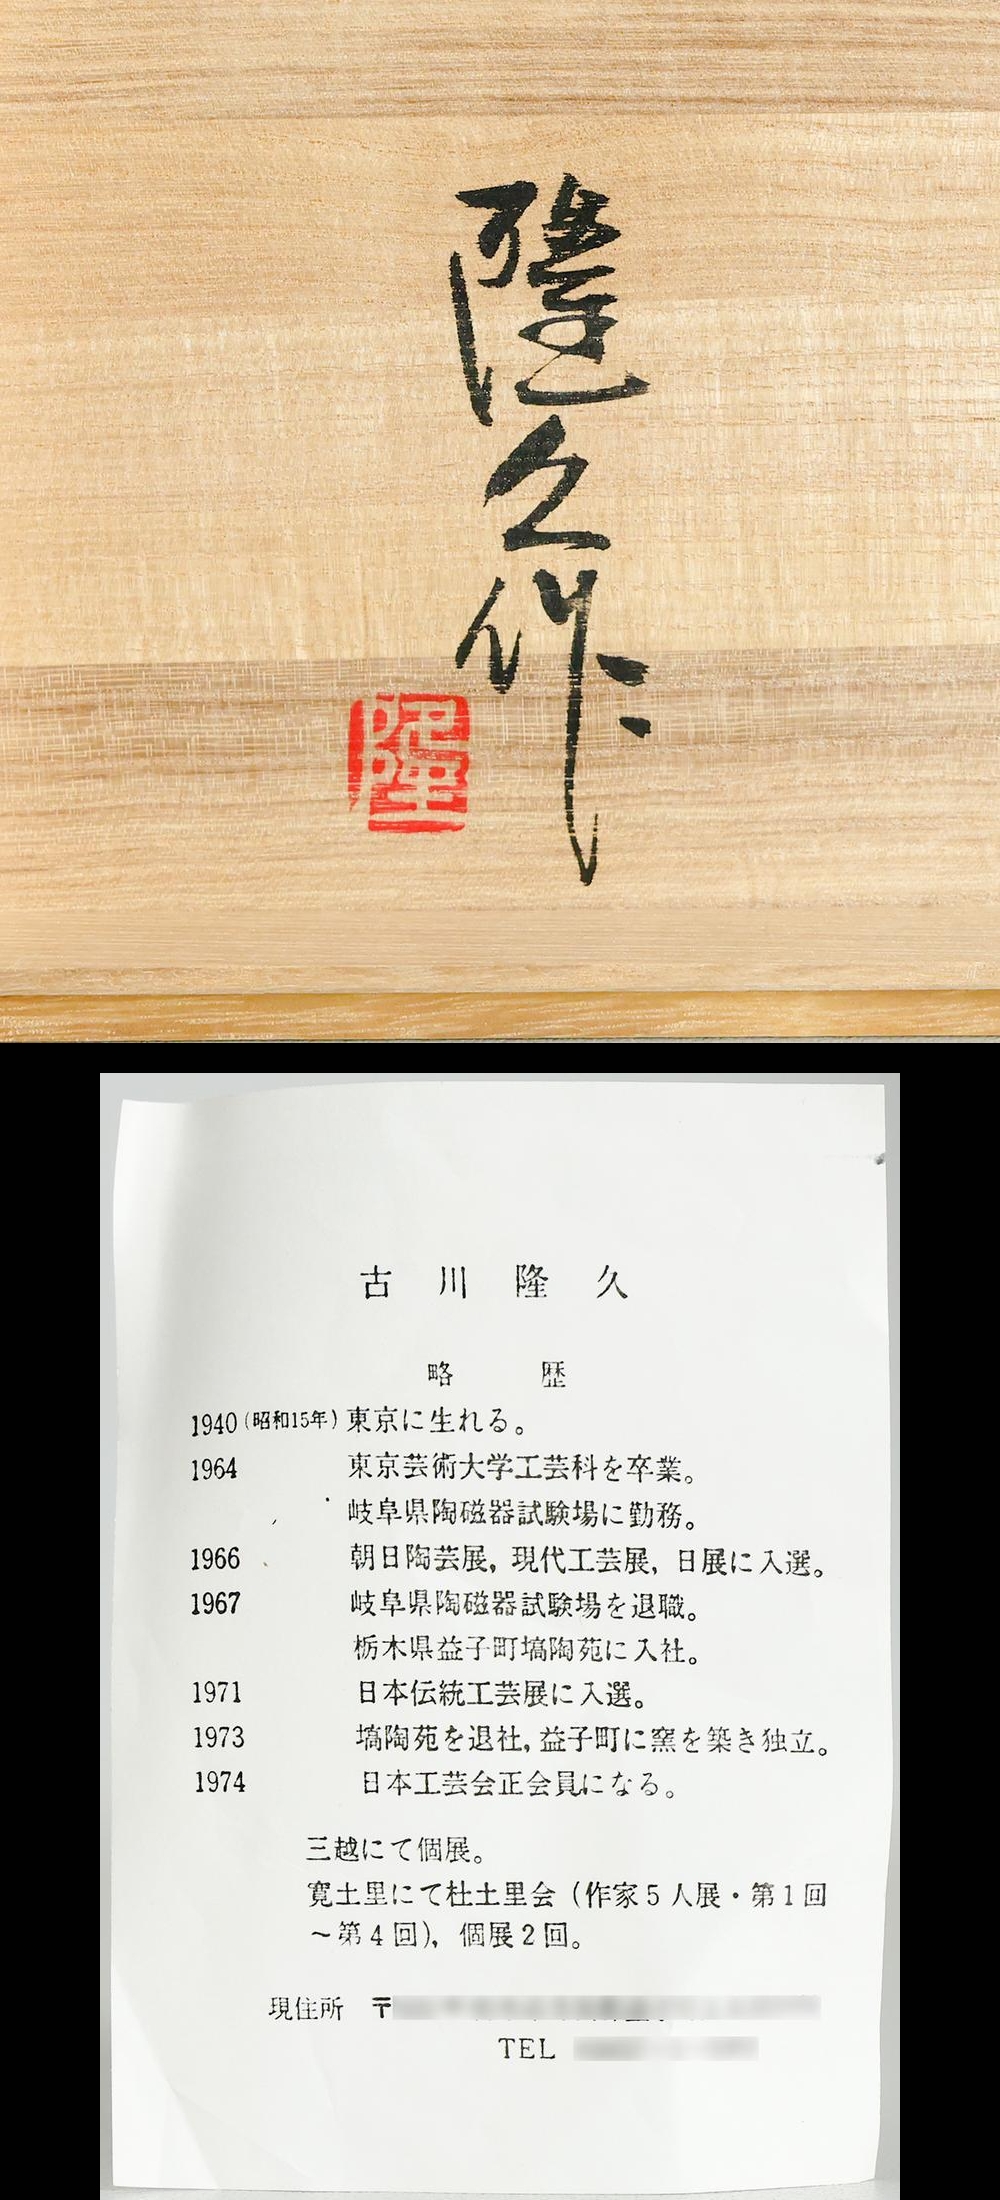 隆久作
隆
古川隆久
略歴
1940(昭和15年)東京に生れる。
1964 東京芸術大学工芸科を卒業。
岐阜県陶磁器試験場に勤務。
1966 朝日陶芸展，現代工芸展，日展に入選。
1967 岐阜県陶磁器試験場を退職。
栃木県益子町塙陶苑に入社。
1971 日本伝統工芸展に入選。
1973 塙陶苑を退社，益子町に窯を築き独立。
1974 日本工芸会正会員になる。
三越にて個展。
寛土里にて杜土里会（作家5人展・第1回
～第4回），個展2回。
現住所 〒
TEL